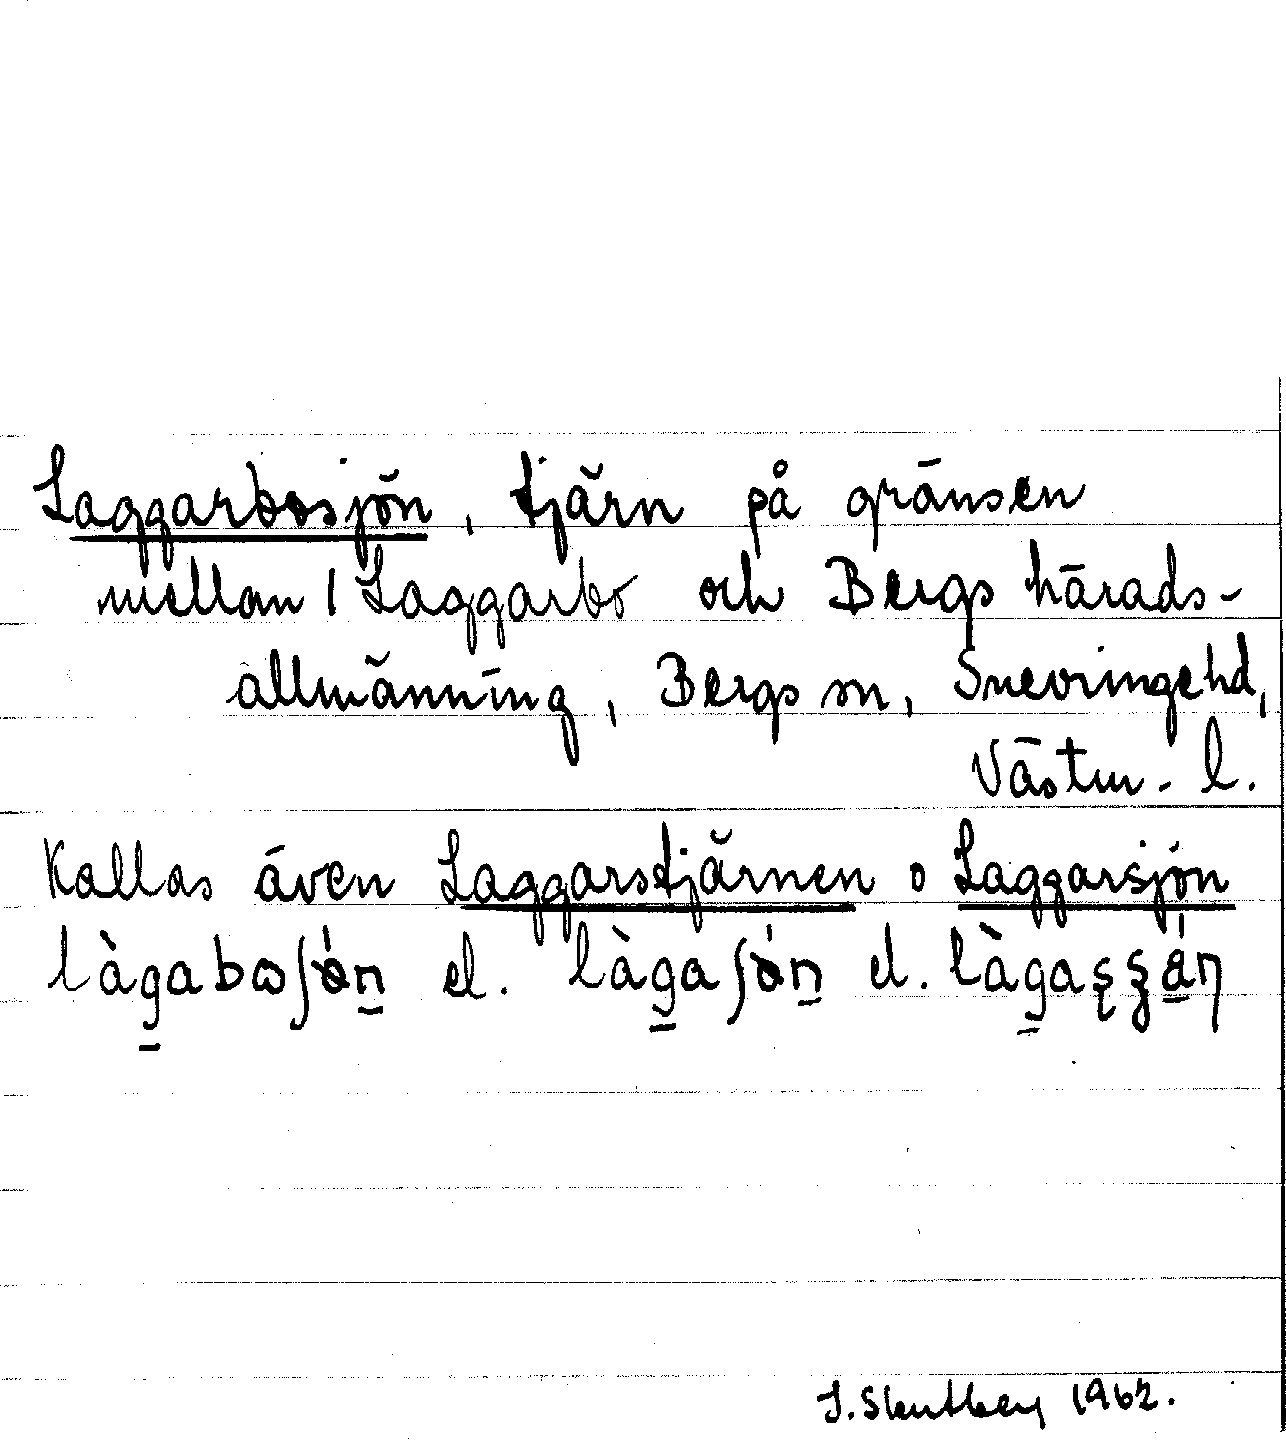 Laggarbosjön, tjärn på gränsen
mellan / Laggarbo och Bergs härads-
allmänning, Bergs sn, Snevringe hd,
Västm. l.
Kallas även Laggarstjärnen o Laggarsjön
el. el.
1962.